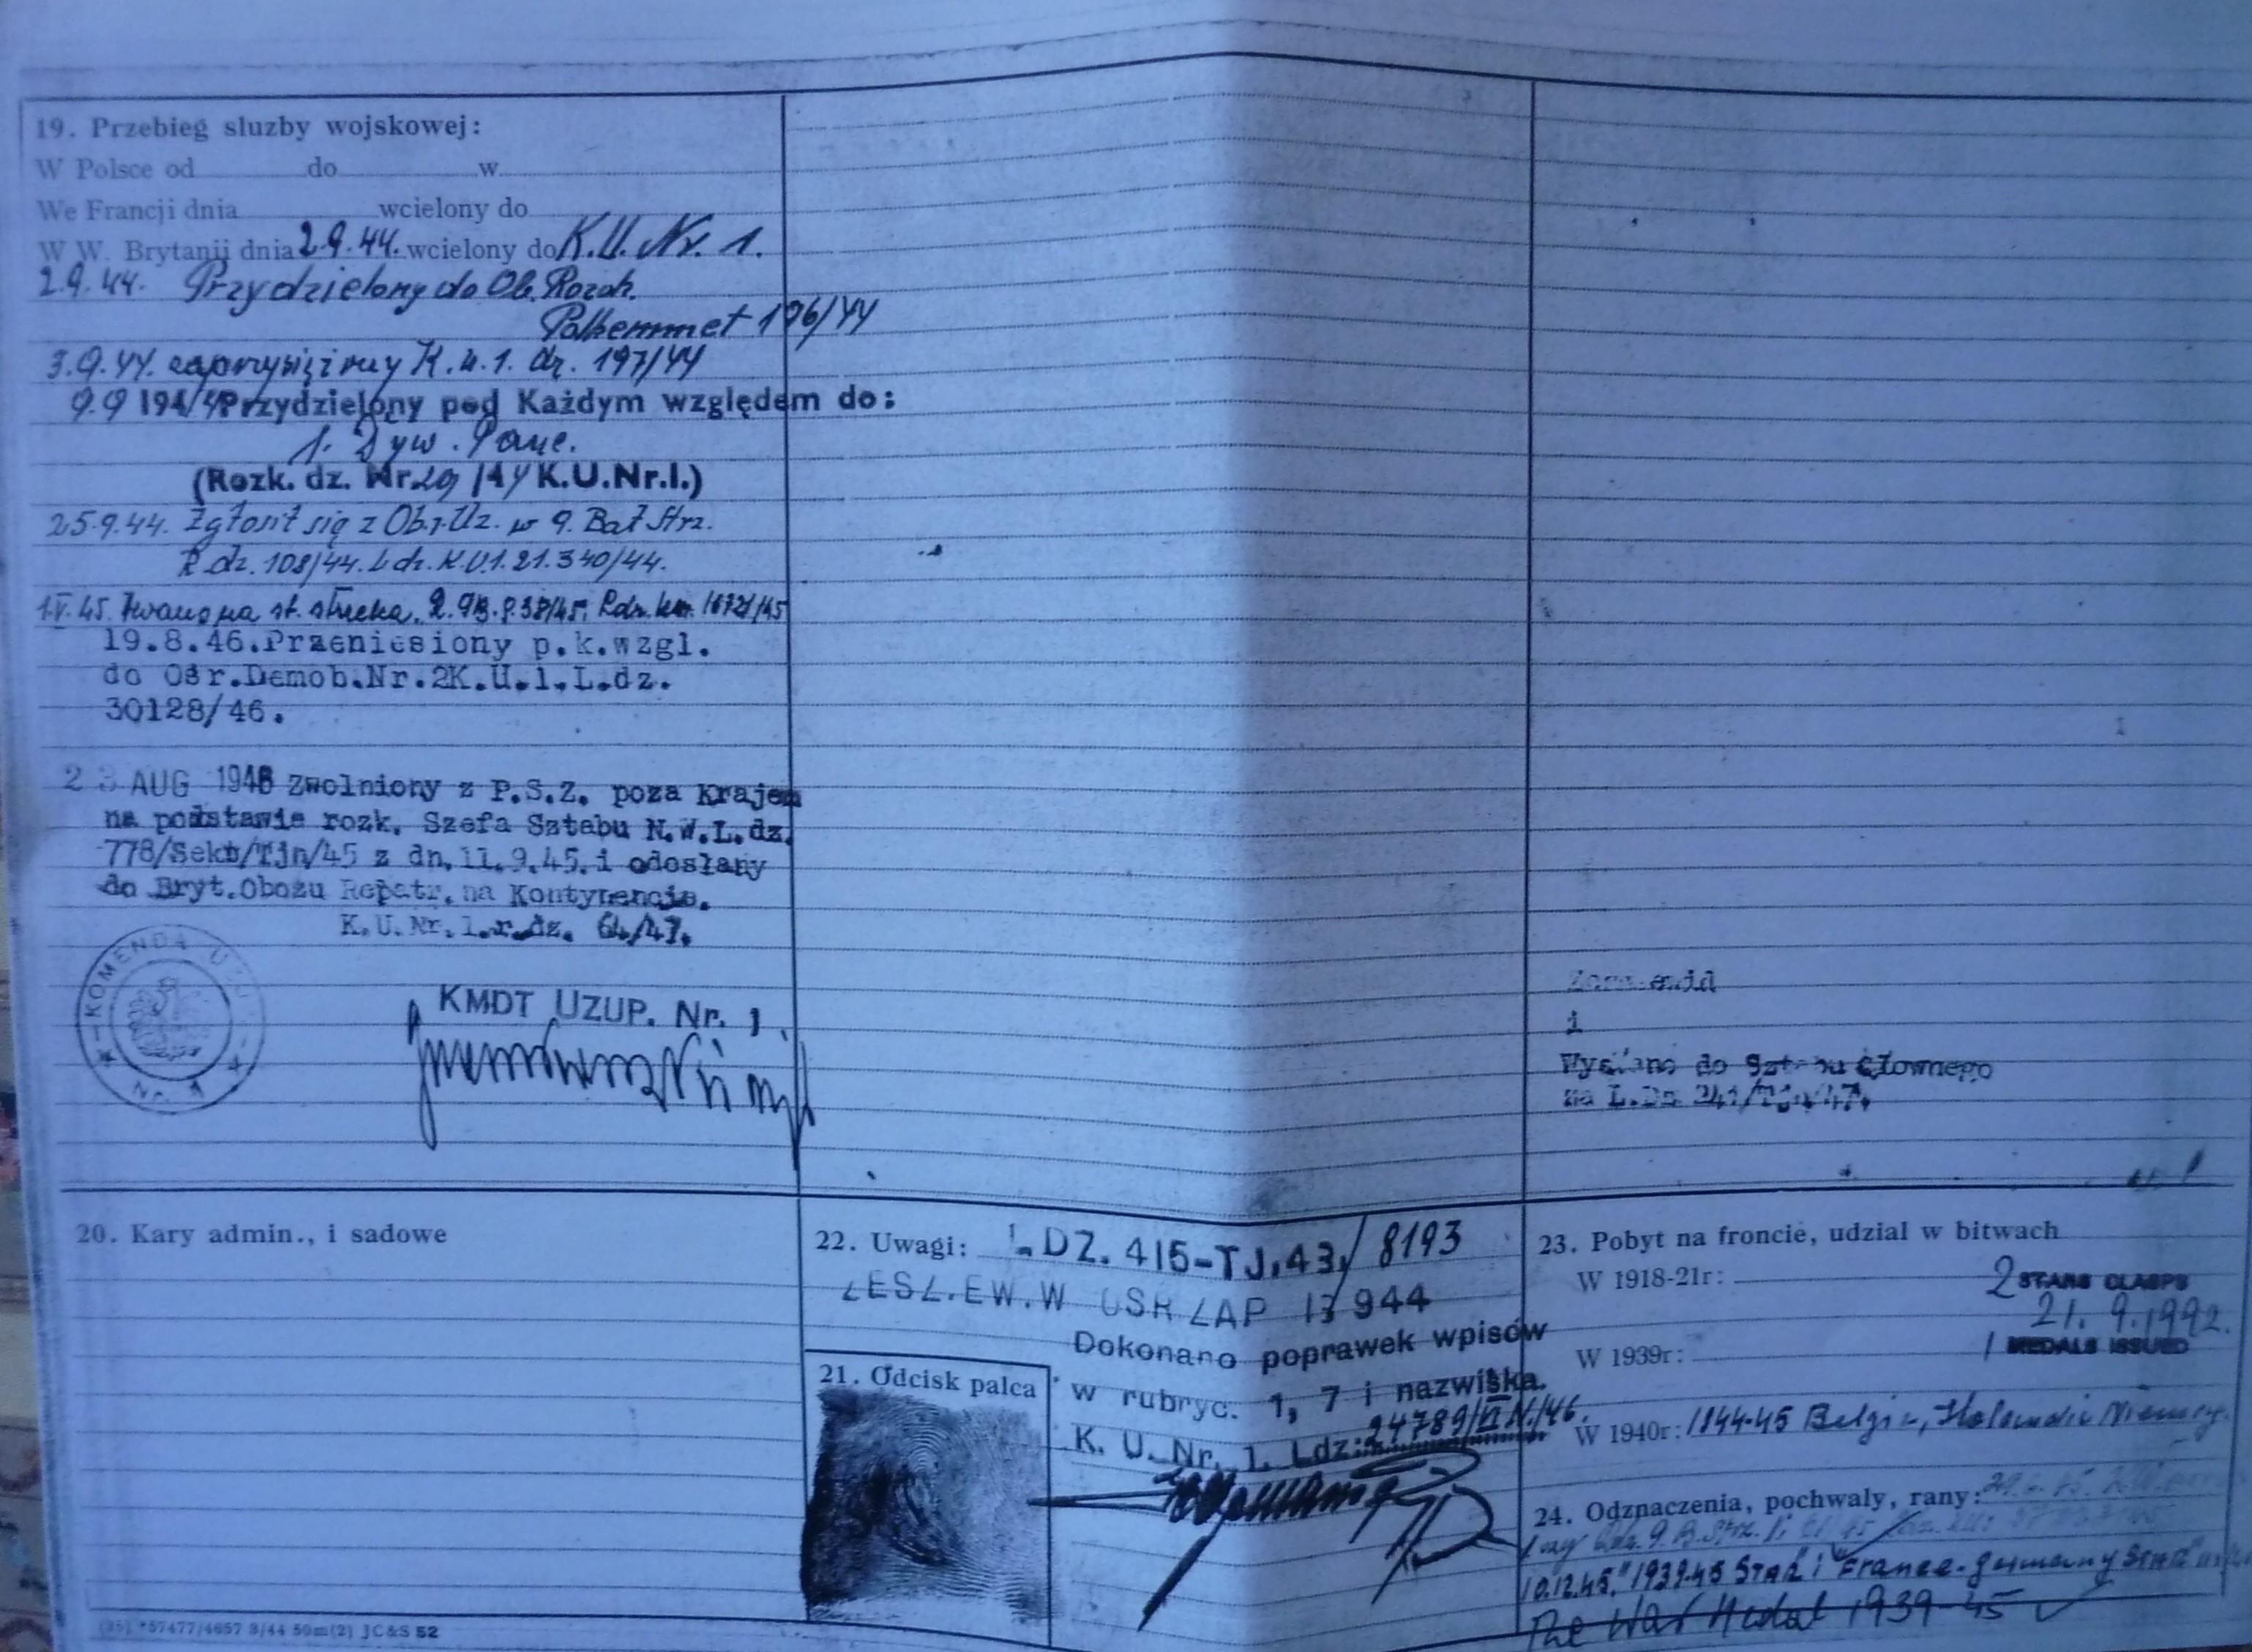 19. Przebieg sluzby wojskowej:
W Polsce od do w
We Francji dnia wcielony do
W W. Brytanji dnia 2.9.44. wcielony do K.U. Nr. 1.
2.9.44. Przydzielony do Ob. Rozdz.
Polkemmet 196/44
3.9.44. zaprzysiężony K.U.1. dz. 197/44
9.9 194/4 Przydzielony pod Każdym względem do:
1. Dyw. Panc.
(Rozk. dz. Nr. 209/44 K.U.Nr.1.)
25.9.44. Zgłosił się z Ob. Uz. w 9. Bat Strz.
R.dz. 108/44. L.dz. K.U.1.21.340/44.
1.V.45. st. strzelca.
19.8.46. Przeniesiony p.k.wzgl.
do Ośr.Demob.Nr.2K.U.1.L.dz.
30128/46.
23 AUG 1946 Zwolniony z P.S.Z. poza Krajem
na podstawie rozk. Szefa Sztabu N.W.L.dz.
778/Sekt/Tjn/45 z dn.11.9.45.i odesłany
do Bryt.Obozu Repatr.na Kontynencie.
K.U.Nr.1.r.dz. 64/47.
KOMENDA
Nr. 1
KMDT UZUP. Nr. 1.
i
Wysłano do Sztabu Głównego
na L.Dz 241/Tjn/47.
20. Kary admin., i sadowe
22. Uwagi: L.DZ. 415-TJ.43/8193
944
Dokonano poprawek wpisów
w rubryc. 1, 7 i nazwiska.
K. U. Nr. 1. Ldz: 24789/VI N./46.
21. Odcisk palca
23. Pobyt na froncie, udzial w bitwach
W 1918-21r:
2 STARS CLASPS
21. 9. 1992.
W 1939r:
1 MEDALS ISSUED
W 1940r: 1944-45 Belgia, Holandia Niemcy.
24. Odznaczenia, pochwaly, rany:
10.12.45. "1939-45 Star" i "France-Germany Star"
The War Medal 1939-45
*57477/4657 8/44 50m(2) JC&S 52